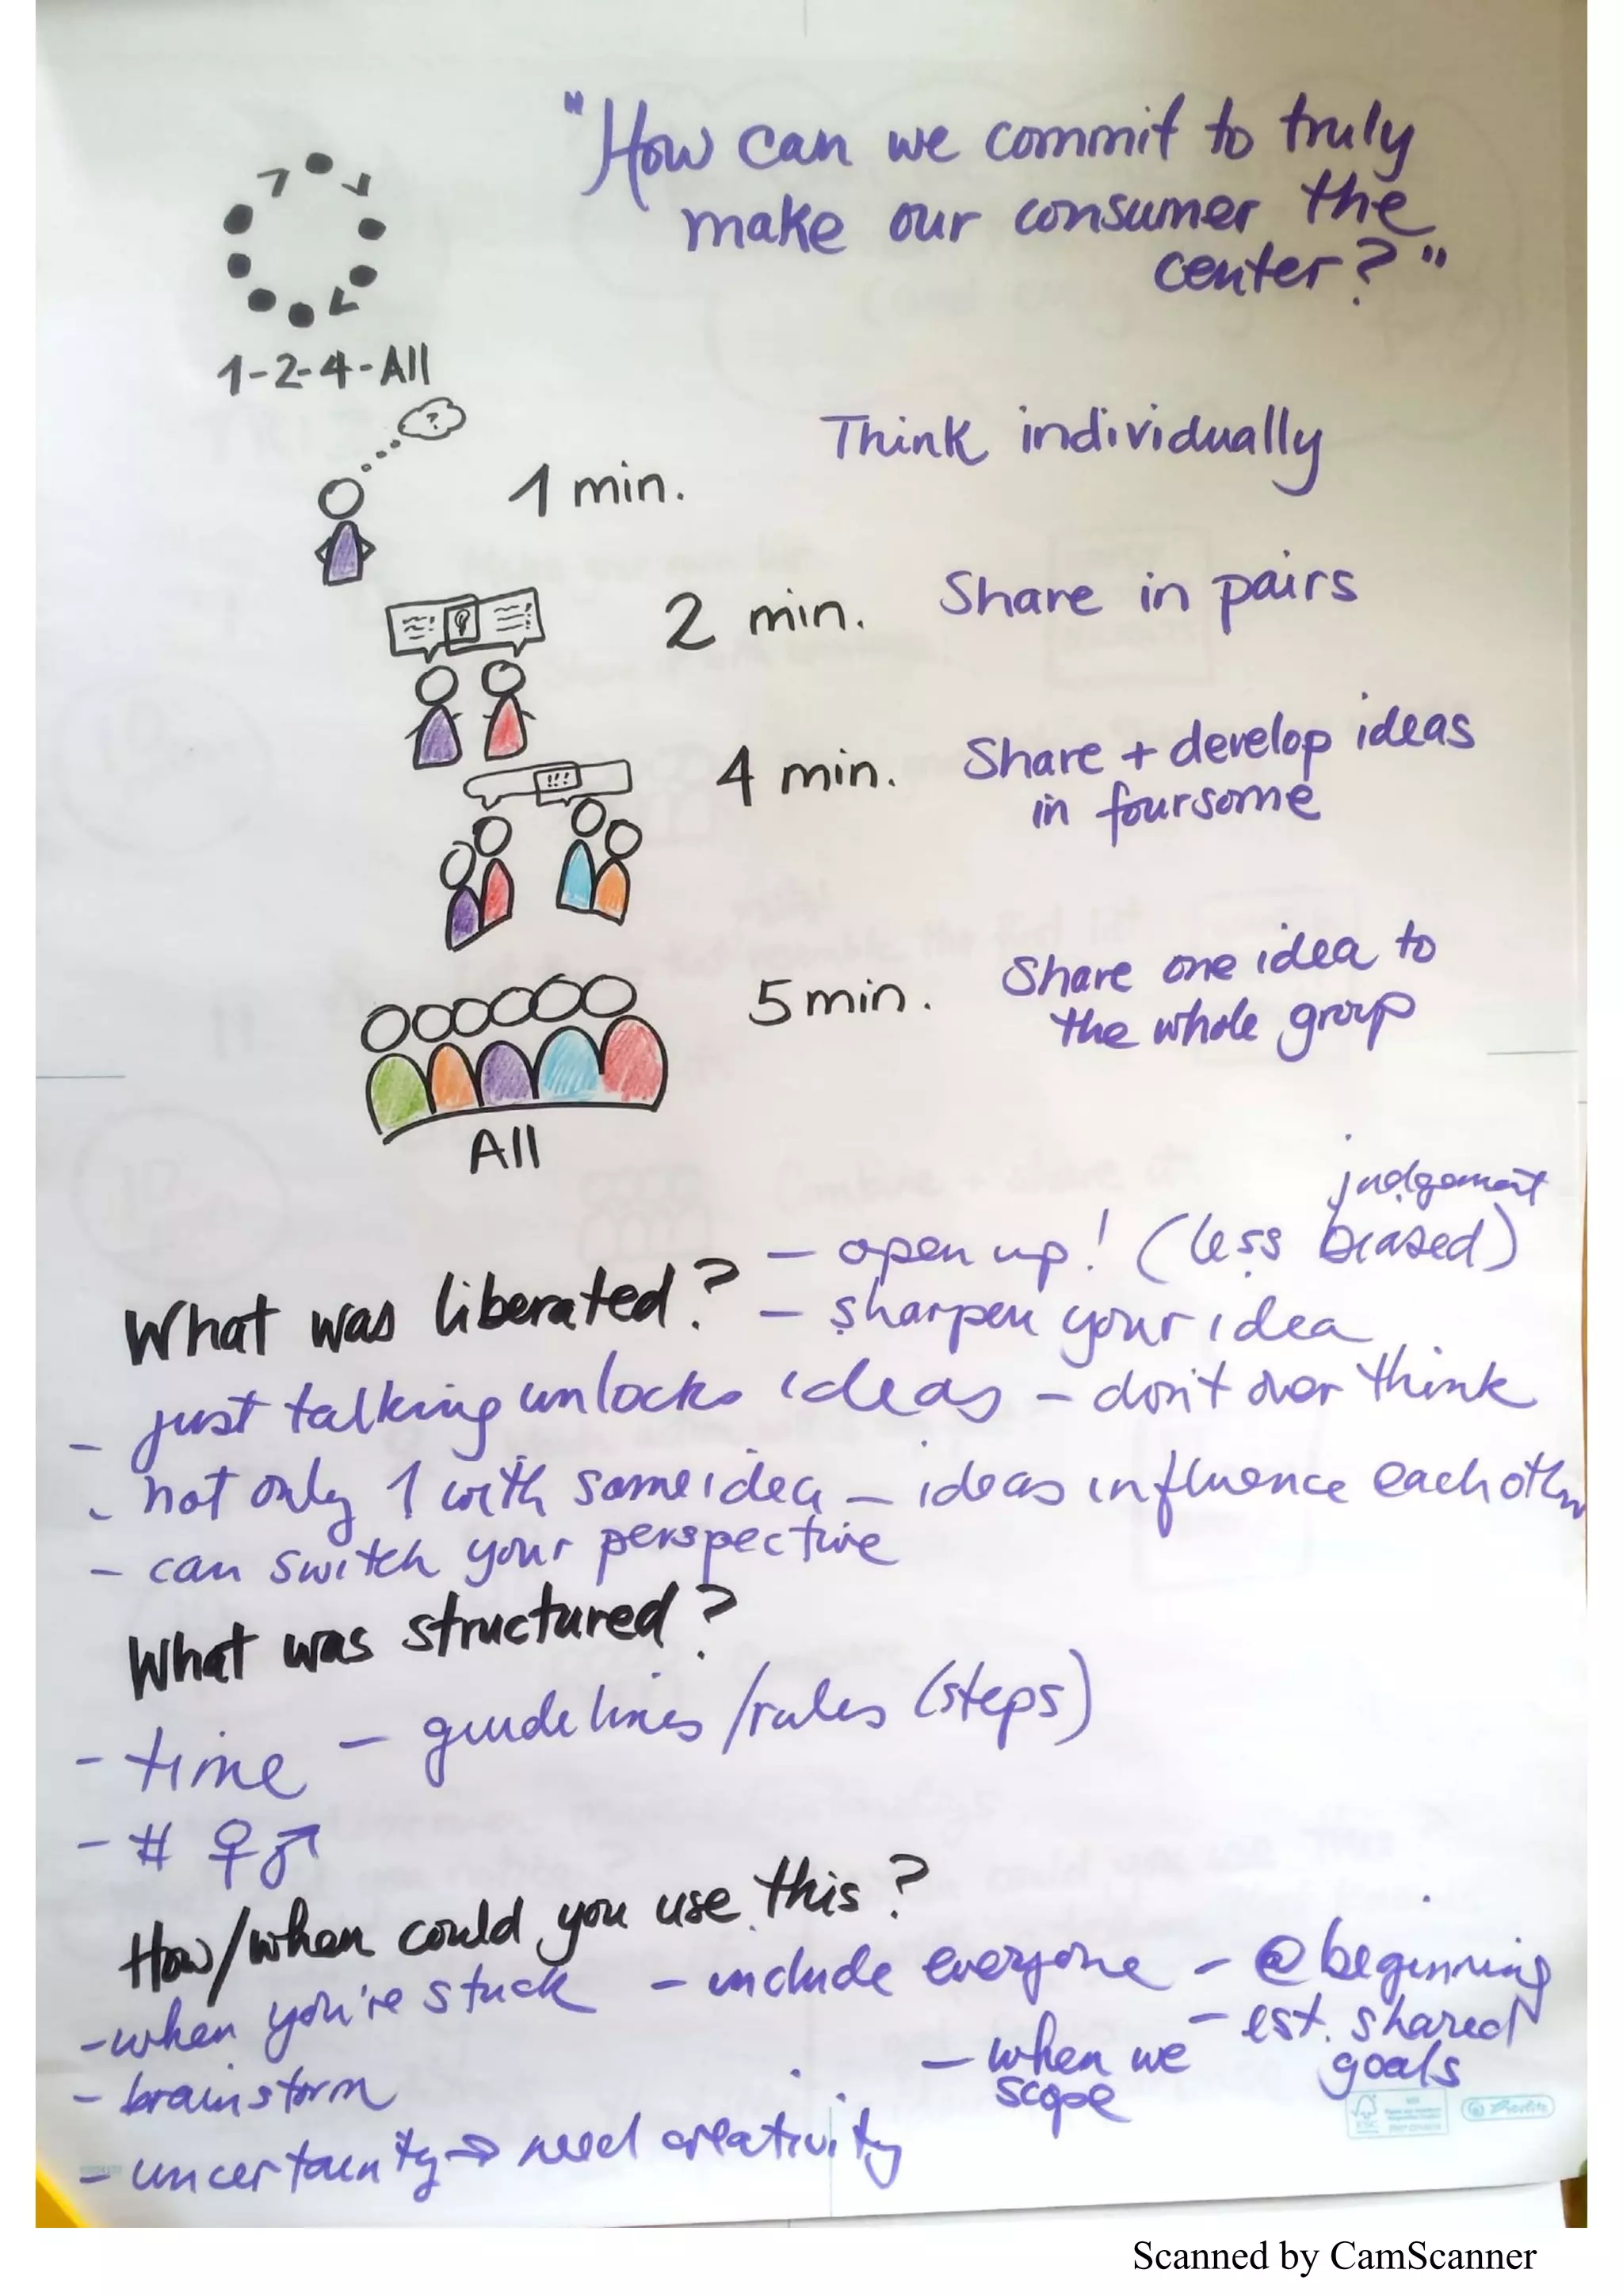 "How can we commit to truly
make our consumer the
center?"
1-2-4-All
?
Think individually
1 min.
2 min. Share in pairs
4 min. Share + develop ideas
in foursome
!!!
5 min. Share one idea to
the whole group
All
judgement
What was liberated? – open up! (less biased)
– sharpen your idea
– just talking unlocks ideas – don't over think
- not only 1 with same idea – ideas influence each other
– can switch your perspective
What was structured?
- time – guidelines/rules (steps)
- # ♀♂
How/when could you use this?
- when you're stuck – include everyone – @beginning
– when we – est. shared
scope goals
- brainstorm
– uncertainty → need creativity
FSC
Scanned by CamScanner